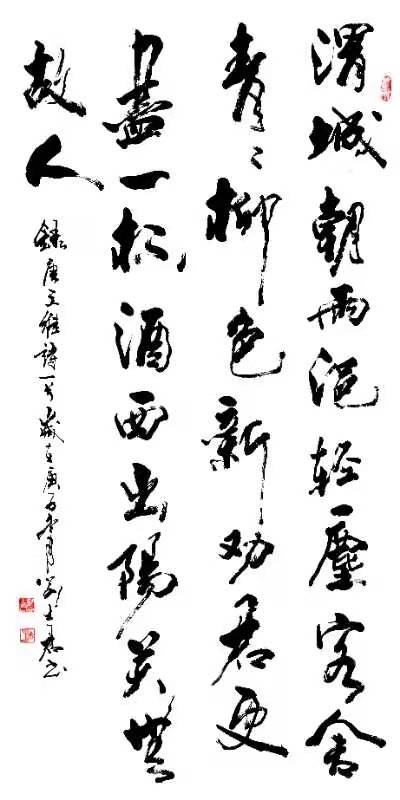 渭城朝雨浥轻塵客舍
青々柳色新劝君更
盡一杯酒西出陽关無
故人
録唐王維詩一首歲在庚月士书